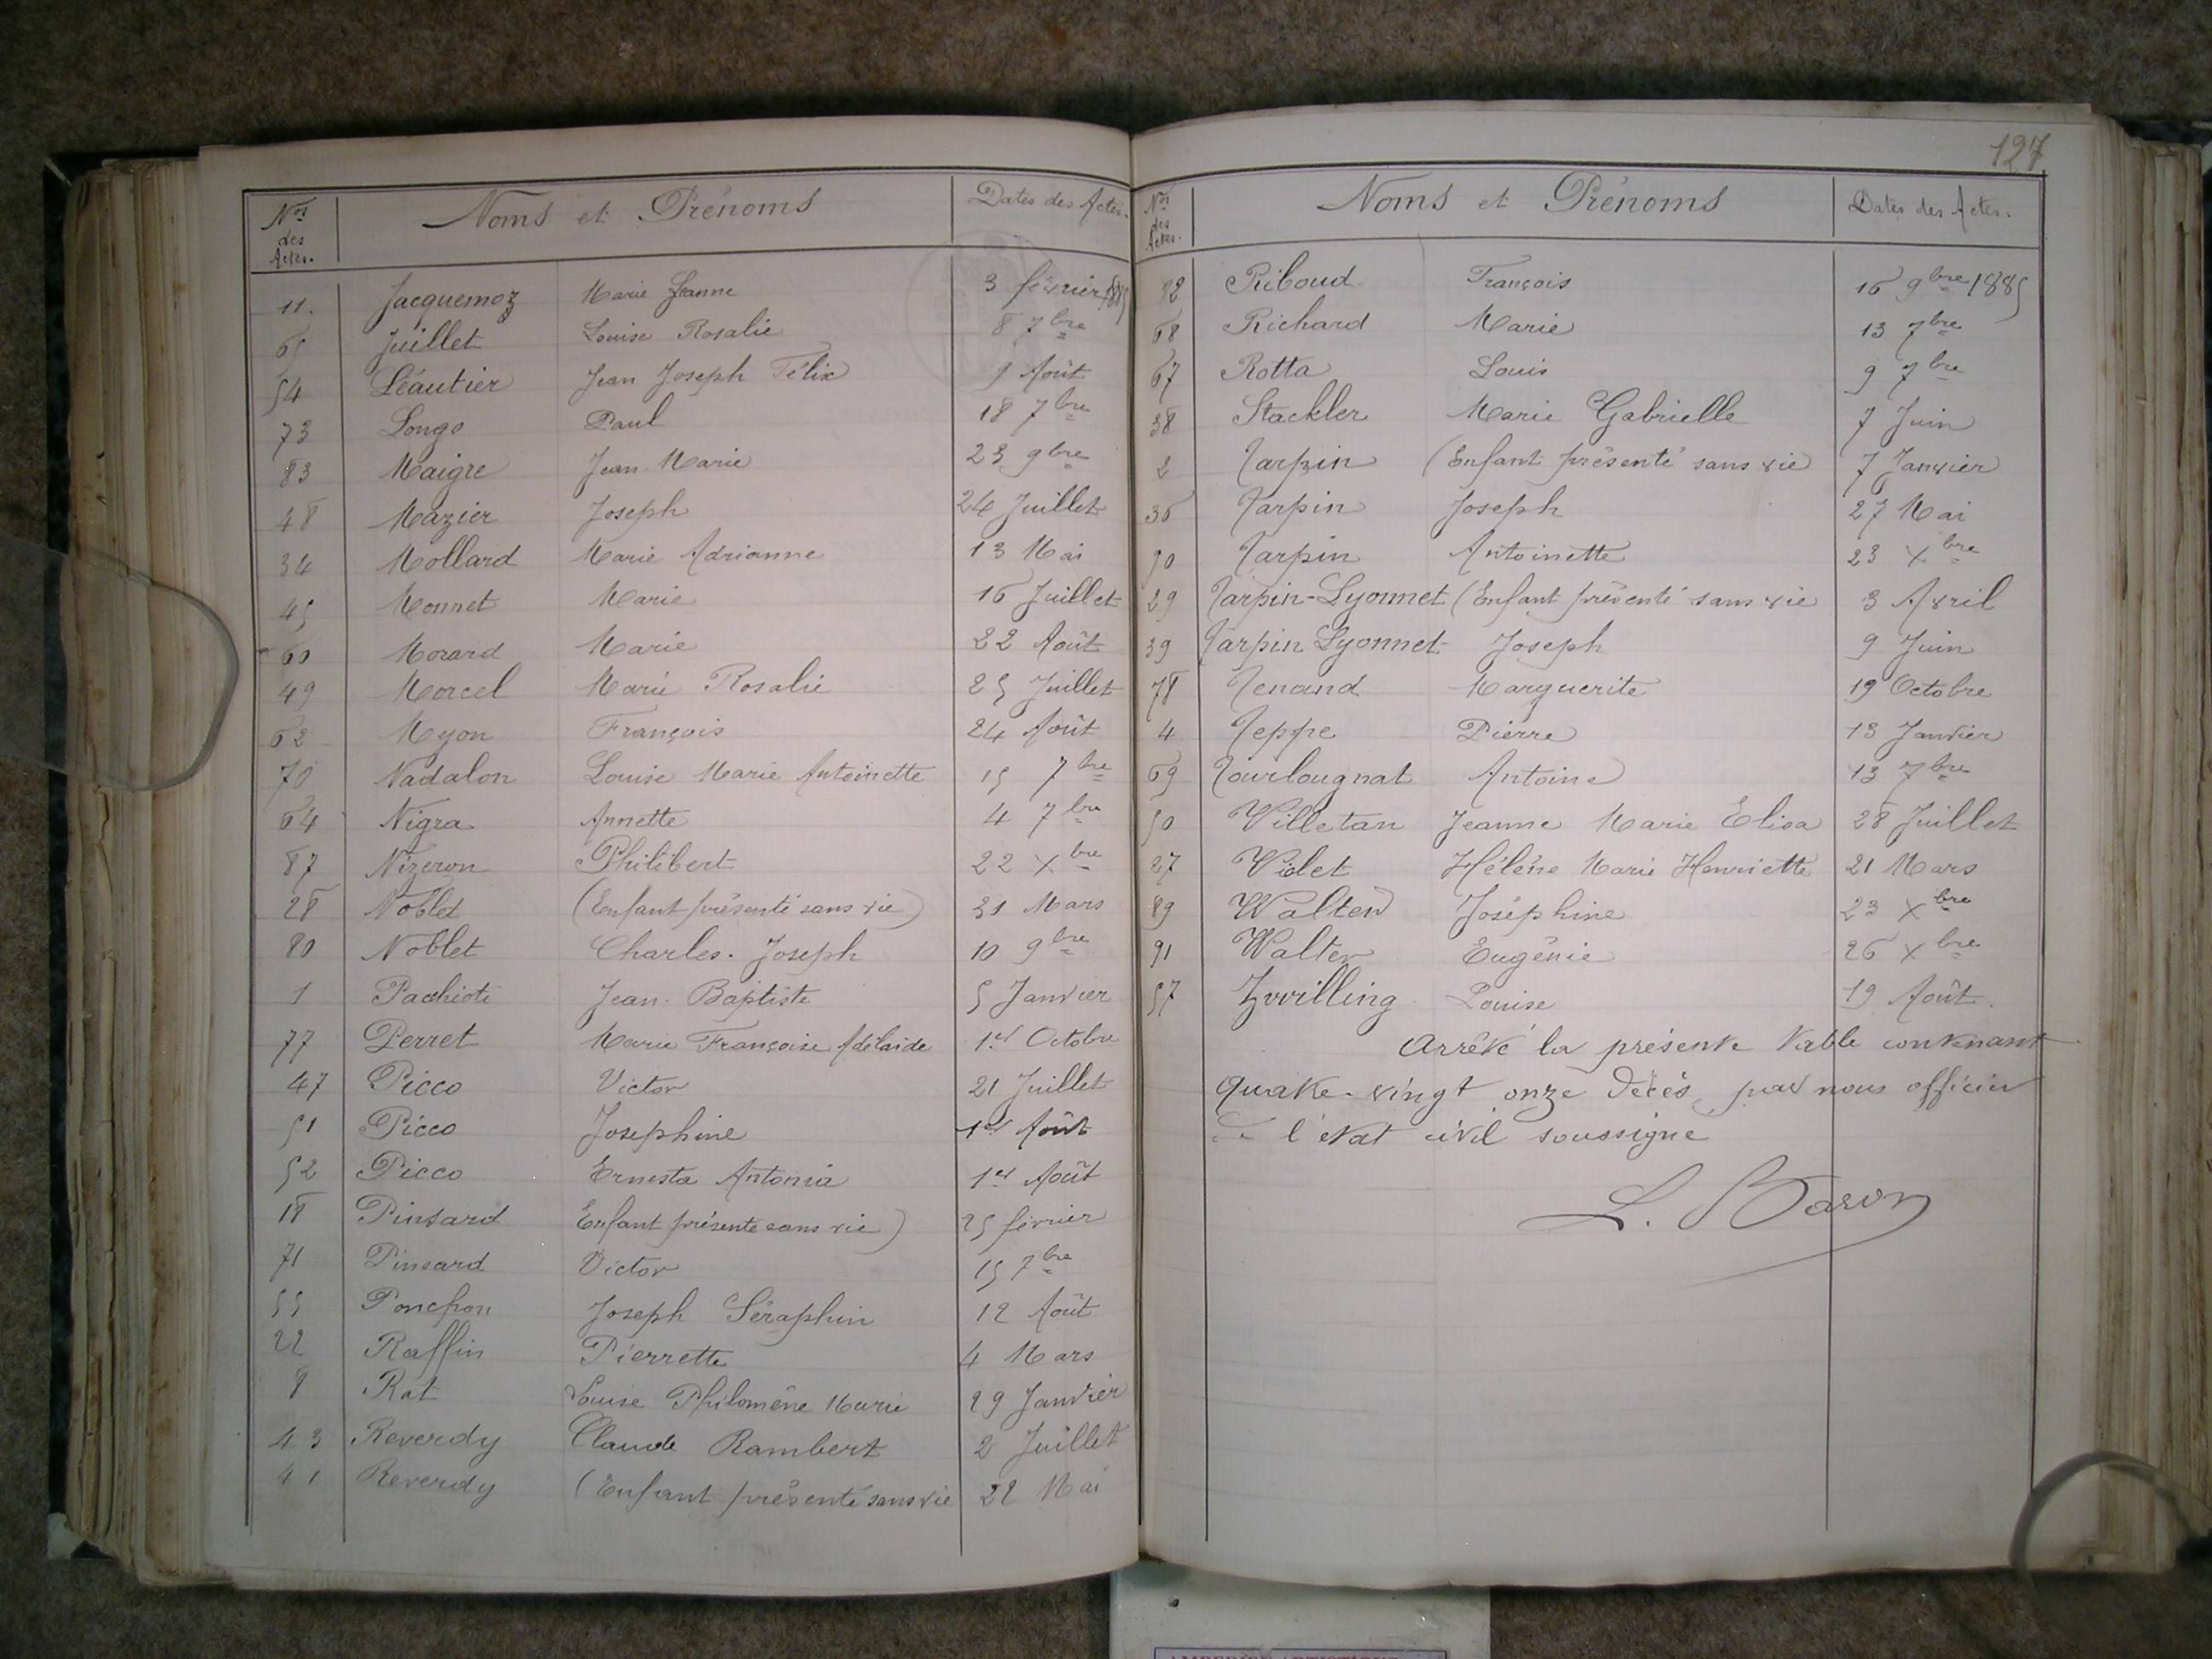 Nos des Actes. Noms et Prénoms Dates des Actes.
11. Jacquemoz Marie Jeanne 3 février 1885
65 Juillet Louise Rosalie 8 7bre
54 Léautier Jean Joseph Félix 9 Août
73 Longo Paul 18 7bre
83 Maigre Jean-Marie 23 9bre
48 Mazier Joseph 24 Juillet
34 Mollard Marie Adrianne 13 Mai
45 Monnet Marie 16 Juillet
60 Morard Marie 22 Août
49 Morcel Marie Rosalie 25 Juillet
62 Myon François 24 Août
70 Nadalon Louise Marie Antoinette 15 7bre
64 Nigra Annette 4 7bre
87 Nizeron Philibert 22 Xbre
28 Noblet (Enfant présenté sans vie) 31 Mars
80 Noblet Charles. Joseph 10 9bre
1 Pachioti Jean-Baptiste 5 Janvier
77 Perret Marie Françoise Adélaide 1er Octobre
47 Picco Victor 21 Juillet
51 Picco Josephine 1er Août
52 Picco Ernesta Antonia 1er Août
18 Pinsard Enfant présenté sans vie) 25 février
71 Pinsard Victor 15 7bre
55 Ponchon Joseph Séraphin 12 Août
22 Raffin Pierrette 4 Mars
8 Rat Louise Philomène Marie 29 Janvier
43 Reverdy Claude Rambert 2 Juillet
41 Reverdy (Enfant présenté sans vie 22 Mai
127
Nos des Actes. Noms et Prénoms Dates des Actes.
82 Riboud François 16 9bre 1885
68 Richard Marie 13 7bre
67 Rotta Louis 9 7bre
38 Stackler Marie Gabrielle 7 Juin
2 Tarpin (Enfant présenté sans vie) 7 Janvier
36 Tarpin Joseph 27 Mai
90 Tarpin Antoinette 23 Xbre
29 Tarpin-Lyonnet (Enfant présenté sans vie 3 Avril
39 Tarpin Lyonnet Joseph 9 Juin
78 Tenand Marguerite 19 Octobre
4 Teppe Pierre 13 Janvier
69 Tourlougnat Antoine 13 7bre
50 Villetan Jeanne Marie Elisa 28 Juillet
27 Violet Hélène Marie Henriette 21 Mars
89 Walter Joséphine 23 Xbre
91 Walter Eugénie 26 Xbre
57 Zwilling Louise 19 Août.
Arrêté la présente table contenant
quatre-vingt onze décès, par nous officier
de l'état civil soussigné
L. Baron